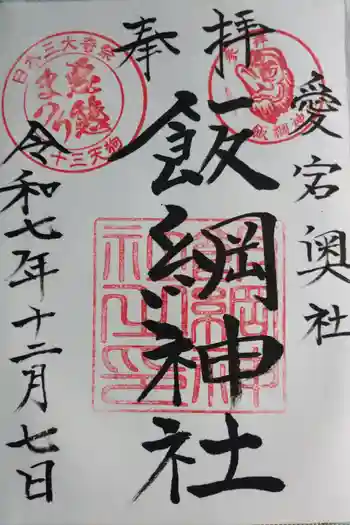 愛宕奥社
奉拝
飯綱神社
令和七年十二月七日
日本三大奇祭
悪態まつり
十三天狗
飯綱神社